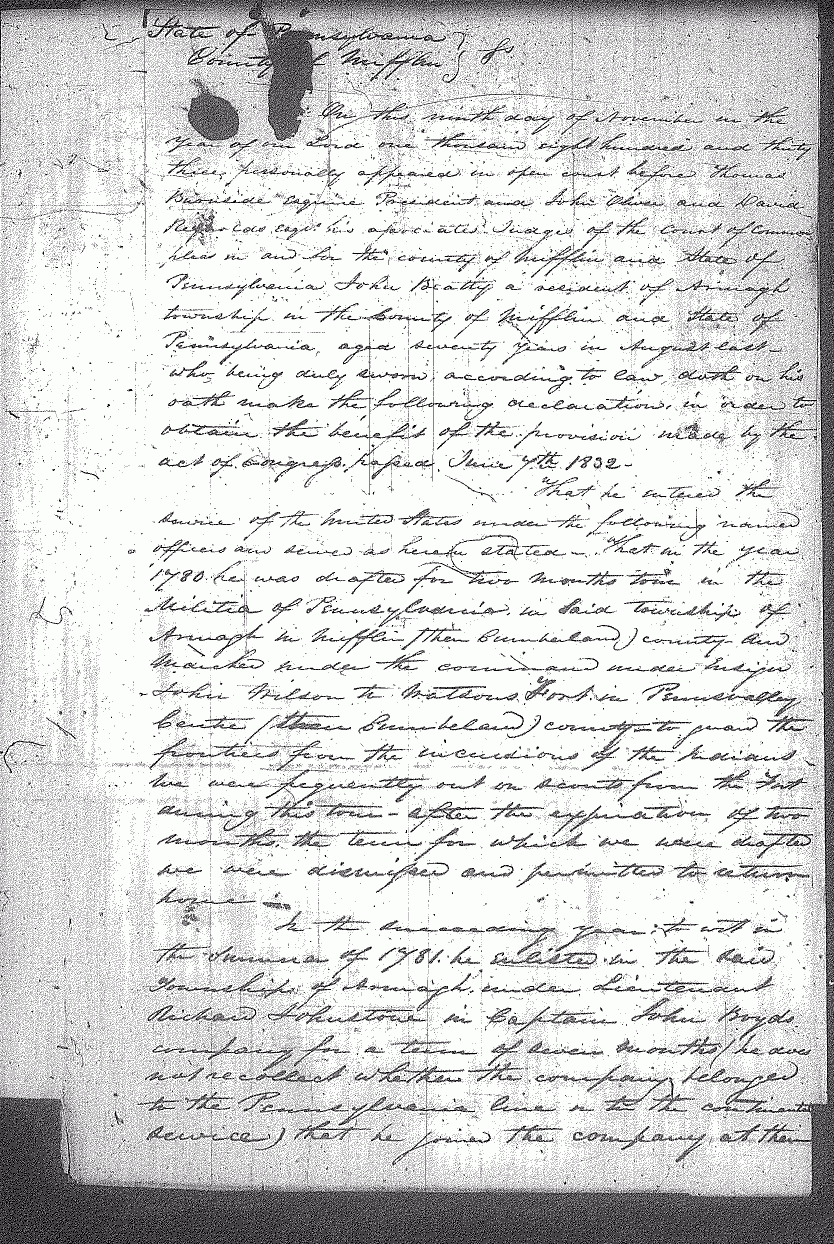 State of Pennsylvania }
County of Mifflin } Ss
On this ninth day of November in the
year of our Lord one thousand eight hundred and thirty
three, personally appeared in open court before Thomas
Burnside Esquire President and John Oliver and David
Reynolds Esqrs his associates Judges of the Court of Common
pleas in and for the county of Mifflin and State of
Pennsylvania John Beatty a resident of Armagh
township in the County of Mifflin and State of
Pennsylvania, aged seventy years in August last—
who, being duly sworn, according to law, doth on his
oath make the following declaration, in order to
obtain the benefit of the provision made by the
act of Congress, passed, June 7th 1832—
That he entered the
service of the United States under the following named
officers and served as herein stated—. That in the year
1780 he was drafted for two months tour in the
Militia of Pennsylvania, in said township of
Armagh in Mifflin (then Cumberland) county and
marched under the command under Ensign
John Wilson to Watsons Fort in Pennsvalley
Centre (then Cumberland) county—to guard the
frontiers from the incursions of the Indians—
we were frequently out on scouts from the Fort
during this tour—after the expiration of two
months, the term for which we were drafted
we were dismissed and permitted to return
home—
In the succeeding year, to wit in
the summer of 1781. he enlisted in the said
Township of Armagh, under Lieutenant
Richard Johnstone in Captain John Boyds
company for a term of seven months (he does
not recollect whether the company belonged
to the Pennsylvania line or to the continental
service) that he joined the company at their